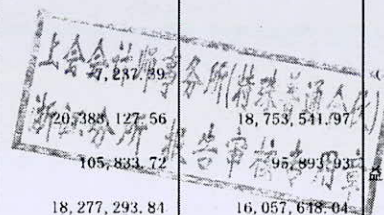 上会会计师事务所(特殊普通合伙)
浙江分所 报告审核专用章
7,237.39
20,383,127.56 18,753,541.97
105,833.72 95,893.93
18,277,293.84 16,057,648.04